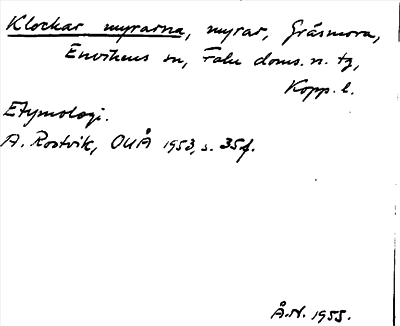 Klockar myrarna, myrar, Gräsmora,
Envikens sn, Falu doms. n. tg,
Kopp. l.
Etymologi.
A. Rostvik, OUÅ 1953, s. 35f.
Å.N. 1955.